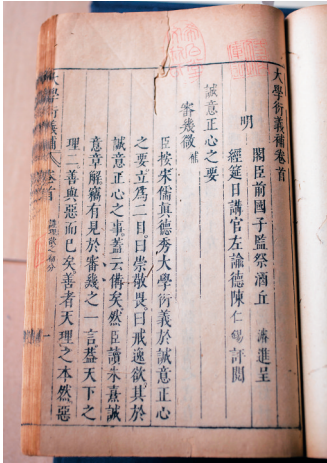 大學衍義補卷首
明 閣臣前國子監祭酒丘濬進呈
經筵日講官左諭德陳仁錫評閱
誠意正心之要
審幾微 補
臣按宋儒真德秀大學衍義於誠意正心
之要立為二目曰崇敬畏曰戒逸欲其於
誠意正心之事蓋云備矣然臣讀朱熹誠
意章解竊有見於審幾之一言蓋天下之
理二善與惡而已矣善者天理之本然惡
大學衍義補 卷首